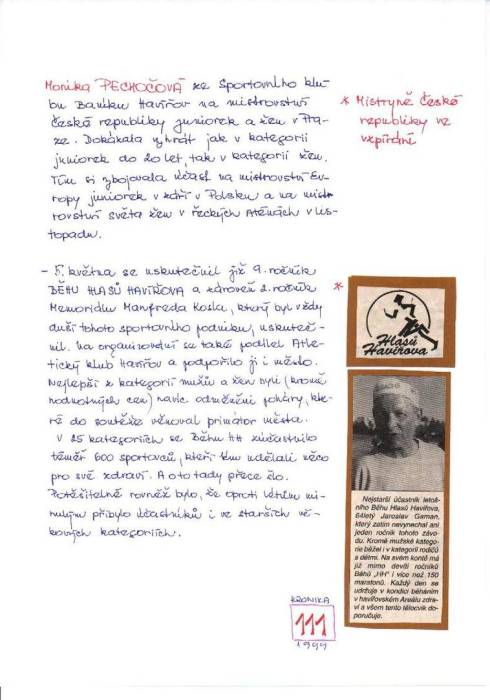 Monika PECHOČOVÁ ze Sportovního klu-
bu Baníku Havířov na mistrovství
České republiky juniorek a žen v Pra-
ze. Dokázala vyhrát jak v kategorii
juniorek do 20 let, tak v kategorii žen.
Tím si vybojovala účast na mistrovství Ev-
ropy juniorek v září v Polsku a na mist-
rovství světa žen v řeckých Athénách v lis-
topadu.
* Mistryně České
republiky ve
vzpírání
- 8. května se uskutečnil již 9. ročník
BĚHU HLASŮ HAVÍŘOVA a zároveň 2. ročník
Memoriálu Manfreda Kosla, který byl vždy
duší tohoto sportovního podniku, uskuteč-
nil. Na organizování se také podílel Atle-
tický klub Havířov a podpořilo ji i město.
Nejlepší z kategorií mužů a žen byli (kromě
hodnotných cen) navíc odměněni poháry, kte-
ré do soutěže věnoval primátor města.
V 25 kategoriích se Běhu HH zúčastnilo
téměř 600 sportovců, kteří tím udělali něco
pro své zdraví. A o to tady přece šlo.
Potěšitelné rovněž bylo, že oproti létům mi-
nulým přibylo účastníků i ve starších vě-
kových kategoriích.
*
Hlasů
Havířova
Nejstarší účastník letoš-
ního Běhu Hlasů Havířova,
64letý Jaroslav Gaman,
který zatím nevynechal ani
jeden ročník tohoto závo-
du. Kromě mužské katego-
rie běžel i v kategorii rodičů
s dětmi. Na svém kontě má
již mimo devíti ročníků
Běhů „HH“ i více než 150
maratonů. Každý den se
udržuje v kondici běháním
v havířovském Areálu zdra-
ví a všem tento tělocvik do-
poručuje.
KRONIKA
111
1999